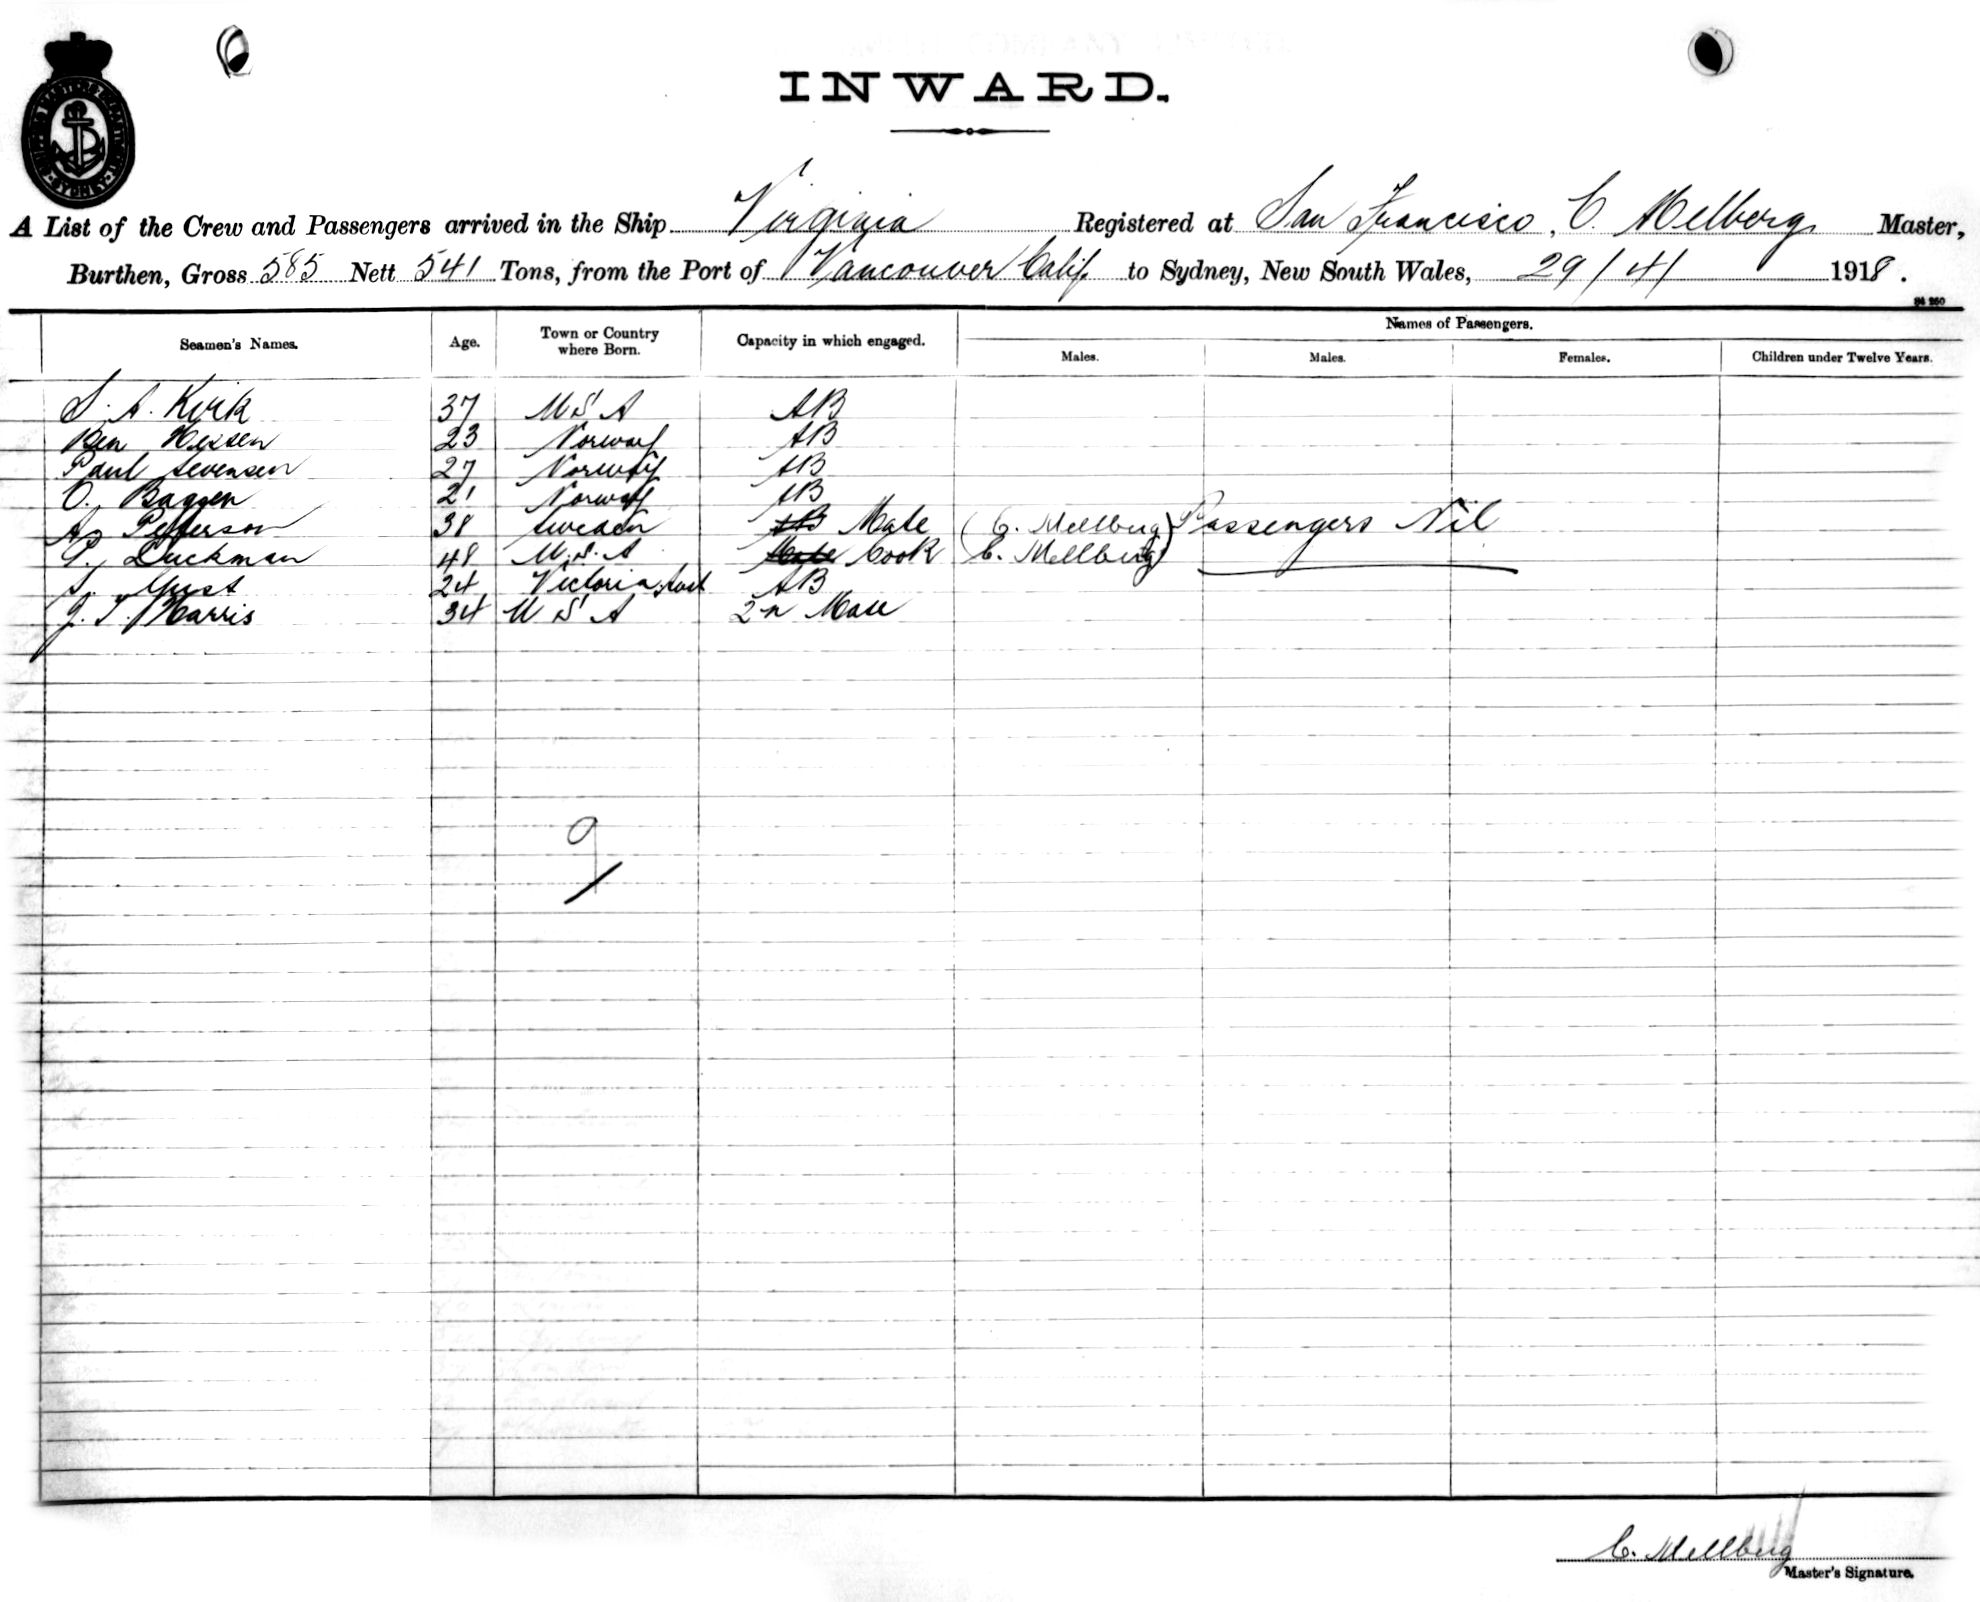 INWARD.
A List of the Crew and Passengers arrived in the Ship Virginia Registered at San Francisco, C. Melberg Master,
Burthen, Gross 585 Nett 541 Tons, from the Port of Vancouver Calif. to Sydney, New South Wales, 29/4/ 1918.
Names of Passengers.
Seamen's Names. Age. Town or Country where Born. Capacity in which engaged. Males. Males. Females. Children under Twelve Years.
S. A. Kirk 37 U S A AB
Ben 23 Norway AB
Paul Sevensen 27 Norway AB
O. Baggen 21 Norway AB
A. Petterson 38 Sweden AB Mate (C. Mellberg) Passengers Nil
P. Luckman 48 U.S.A Mate Cook C. Mellberg)
24 Victoria AB
J. T. Harris 34 U S A 2n Mate
9
C. Mellberg
Master's Signature.